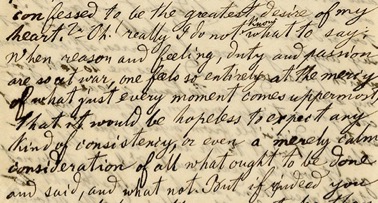 confessed to be the greatest desire of my
heart Oh! really I do not know what to say.
When reason and feeling, duty and passion
are so at war, one feels so entirely at the mercy
of what just every moment comes uppermost
that it would be hopeless to expect any
kind of consistency, or even a merely calm
consideration of all what ought to be done
and said, and what not. But if indeed you